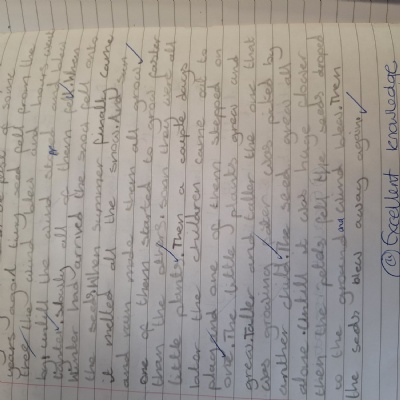 years, I aged tiny seed fell from the
tree. The wind blew and they
by, untill the wind and blew
Winter slowly all of them fell. When
Winter had arrived the snow fell onto
the seeds. When summer finally came
it melted all the snow. And sun
and rain made them all grow.
one of them started to grow faster
than the others. soon they were all
little plants. Then a couple days
later the children came out to
play and one of them stepped on
one. The little plants grew and
grew. Taller and taller the one that
was growing was picked by
another child. The seed grew all
alone. Untill it was huge flower
then the petals fell the seeds droped
to the ground and wind blew. Then
the seeds blew away again.
Excellent knowledge